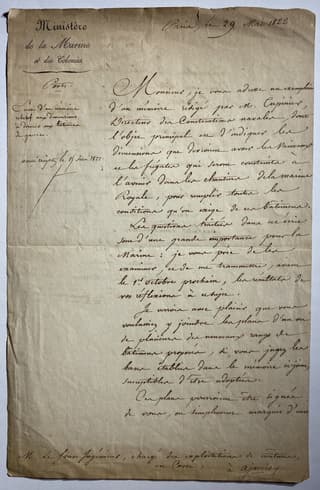 Ministère
de la Marine
et des Colonies
Paris, le 29 Mai 1822
Ports
Envoi d'un mémoire
relatif aux dimensions
à donner aux bâtiments
de guerre.
Monsieur, je vous adresse un exemplaire
d'un mémoire rédigé par M.
Directeur des Constructions navales, dont
l'objet principal est d'indiquer les
dimensions que devront avoir les Vaisseaux
et les frégates qui seront construits à
l'avenir dans les chantiers de la marine
Royale, pour remplir toutes les
conditions qu'on exige de ces bâtiments.
Les questions traitées dans cet écrit
sont d'une grande importance pour la
Marine: je vous prie de les
examiner, et de me transmettre, avant
le 1er octobre prochain, les résultats de
vos réflexions à ce sujet.
Je verrai avec plaisir que vous
vouliez y joindre les plans d'un ou
de plusieurs des nouveaux rangs de
bâtiments proposés, si vous jugez les
bases établies dans le mémoire ci-joint
susceptibles d'être adoptées.
Ces plans pourront être signés
de vous, ou simplement marqués d'une
M. Ingénieur, chargé des exploitations de
en Corse à Ajaccio